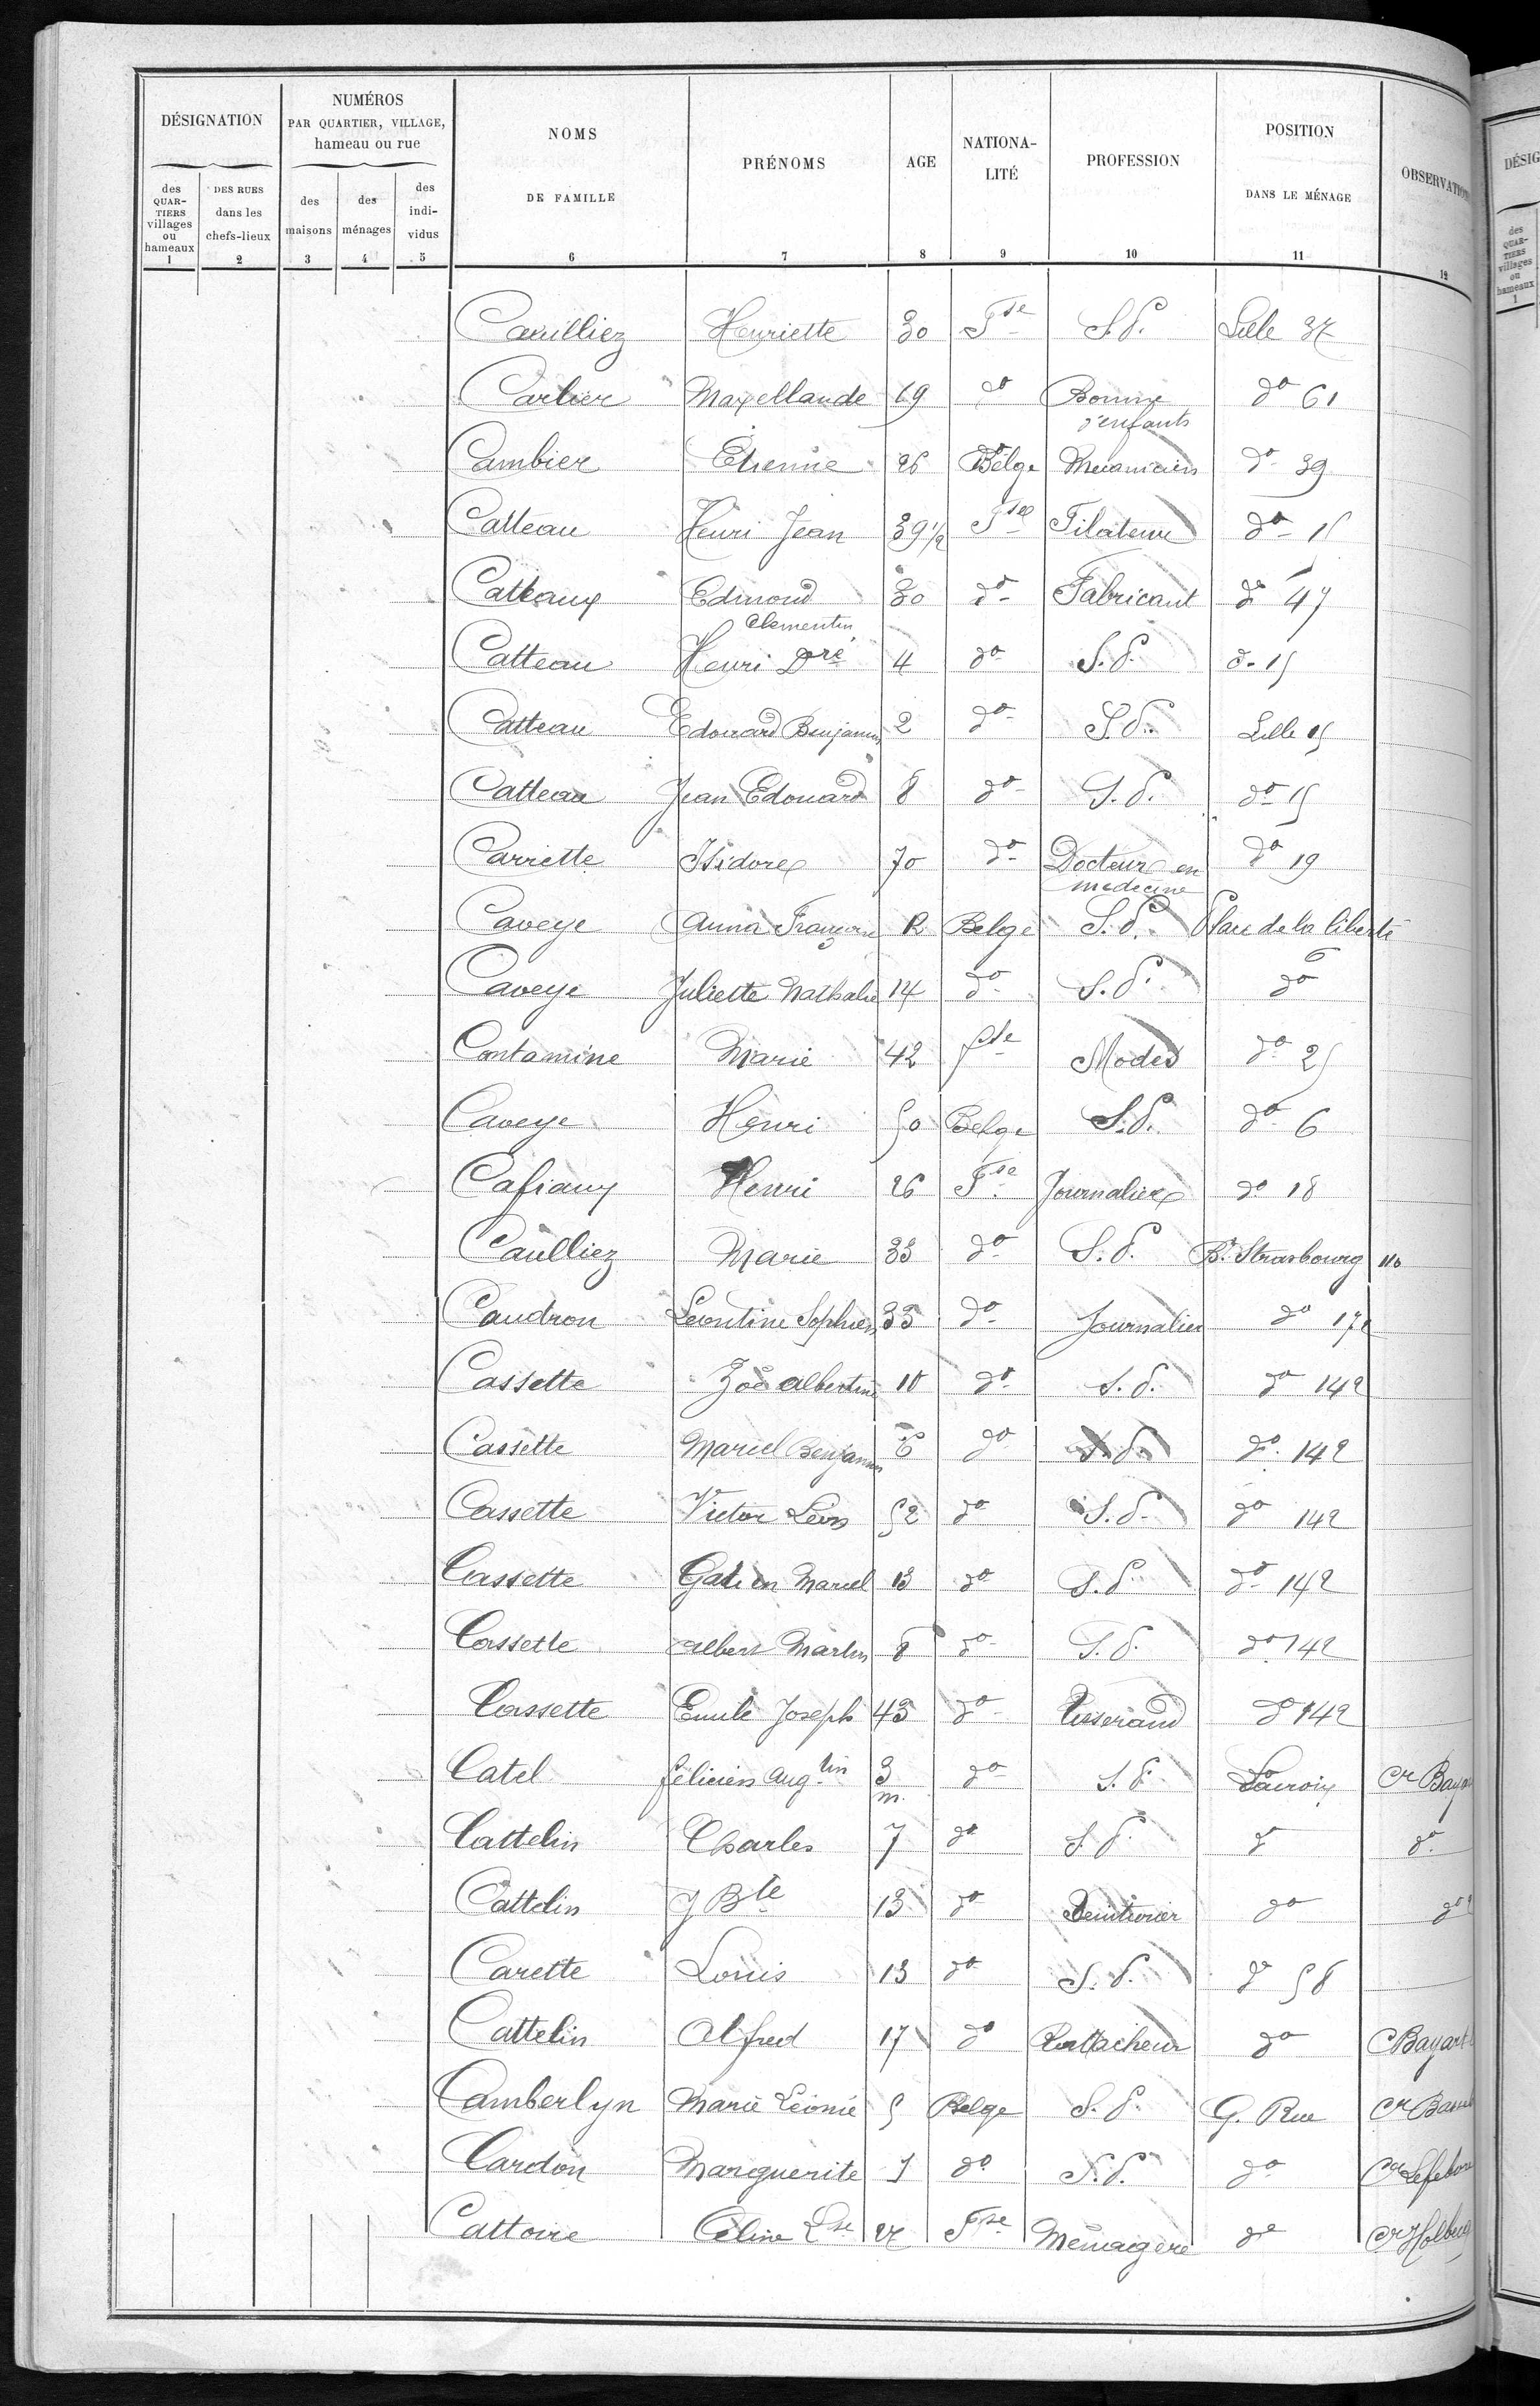 DÉSIGNATION
NUMÉROS
PAR QUARTIER, VILLAGE,
hameau ou rue
NOMS
DE FAMILLE
PRÉNOMS
AGE
NATIONA-
LITÉ
PROFESSION
POSITION
DANS LE MÉNAGE
des QUAR-TIERS villages ou hameaux
DES RUES dans les chefs-lieux
des maisons
des ménages
des indi-vidus
1 2 3 4 5 6 7 8 9 10 11 12
Caulliez Henriette 30 Fse S.P. Lille
Carlier Maxellande 19 do Bonne d'enfants do 61
Cambier Etienne 26 Belge Mecanicien do 39
Catteau Henri Jean 39 1/2 Fse Filateur do 15
Catteaux Edmond Clementin 30 do Fabricant do 47
Catteau Henri Dré 4 do S.P. do 15
Catteau Edouard Benjamin 2 do S.P. Lille 15
Catteau Jean Edouard 8 do S.P. do 15
Carrette Isidore 70 do Docteur en medecine do 19
Caveye Anna Belge S.P. Place de la liberté 6
Caveye Juliette Nathalie 14 do S.P. do
Contamine Marie 42 fse Modes do 25
Caveye Henri 50 Belge S.P. do 6
Cafiaux Henri 26 Fse Journalier do 18
Caulliez Marie 33 do S.P. Bd Strasbourg 110
Caudron Leontine Sophie 35 do Journalier do
Cassette Zoé albertine 10 do S.P. do 142
Cassette Marcel Benjamin 6 do S.P. do 142
Cassette Victor Léon 52 do S.P. do 142
Cassette Gatien Marcel 13 do S.P. do 142
Cassette albert Martin 8 do S.P. do 142
Cassette Emile Joseph 43 do Tisserand do 142
Catel félicien Augtin 3 m. do S.P. Lacroix Cr
Cattelin Charles 7 do S.P. do do
Cattelin J Bte 13 do Teinturier do do
Carette Louis 13 do S.P. do 58
Cattelin Alfred 17 do Rattacheur do C Bayart
Camberlyn Marie Léonie 5 Belge S.P. G. Rue Cr
Cardon Marguerite do S.P. do Cr Lefebvre
Cattoire Céline Lse Fse Ménagère do Cr